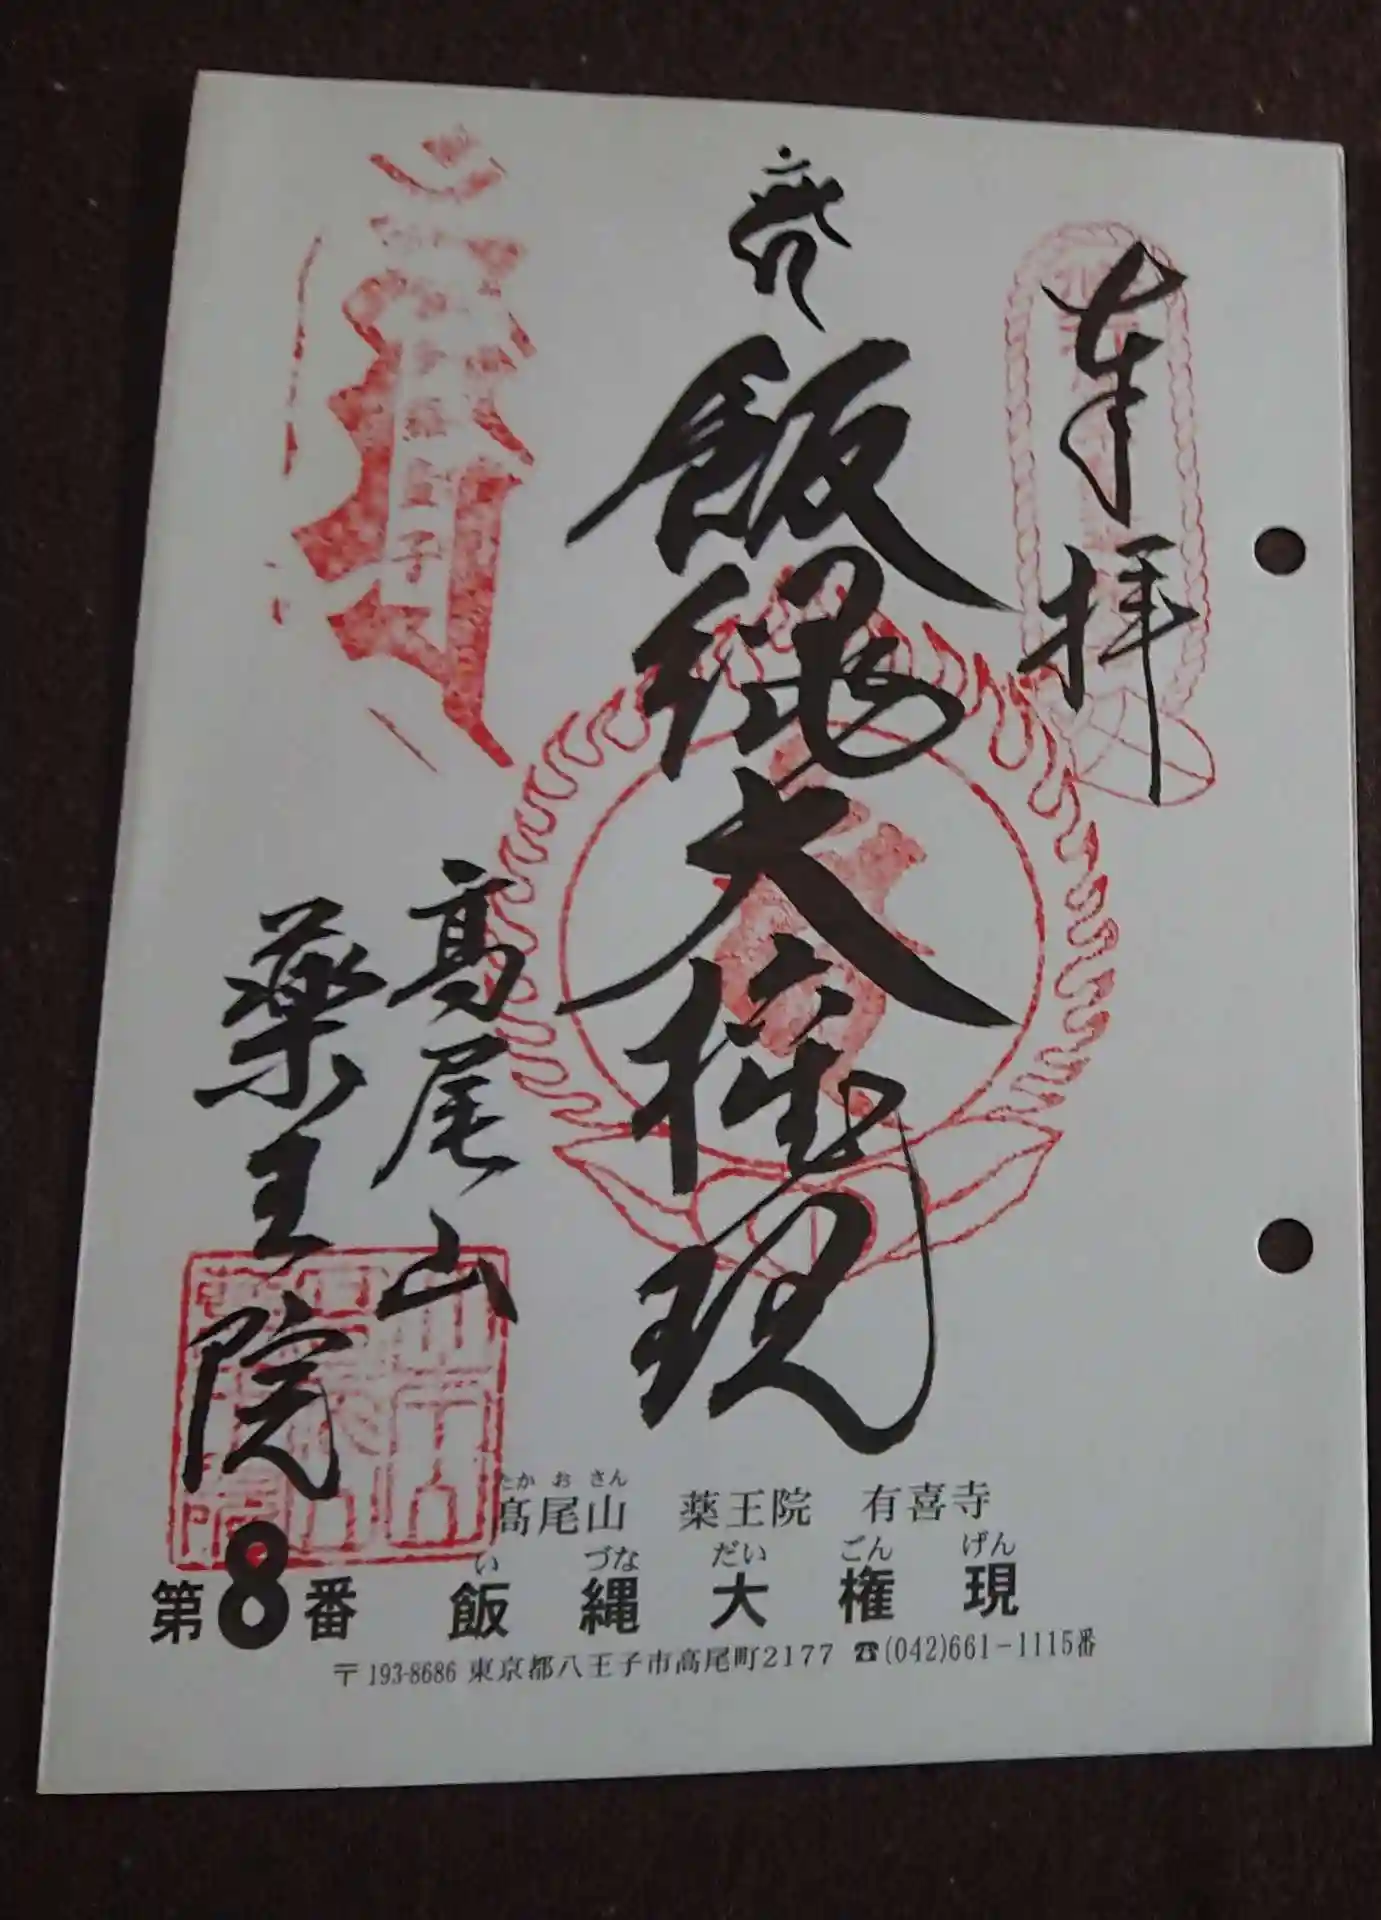 奉拝
飯縄大権現
高尾山
薬王院
たかおさん
髙尾山 薬王院 有喜寺
いづな だい ごん げん
第8番 飯縄大権現
〒193-8686 東京都八王子市高尾町2177 ☎(042)661-1115番